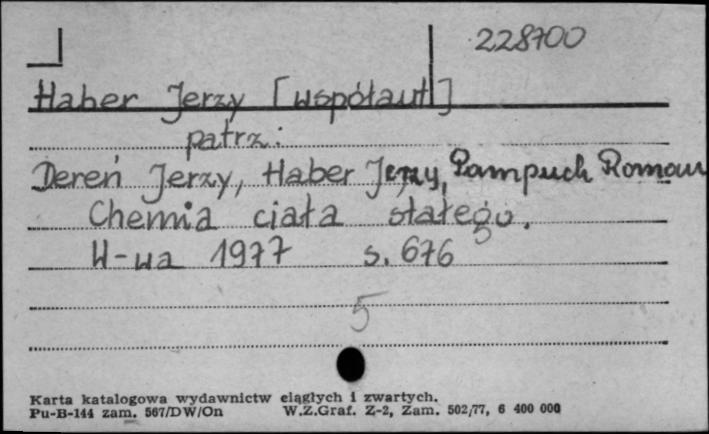 228700
Haber Jerzy [współaut]
patrz:
Dereń Jerzy, Haber Jerzy, Pampuch Roman
Chemia ciała stałego.
W-wa 1977 s. 676
5
Karta katalogowa wydawnictw ciągłych i zwartych.
Pu-B-144 zam. 567/DW/On W.Z.Graf. Z-2, Zam. 502/77, 6 400 000